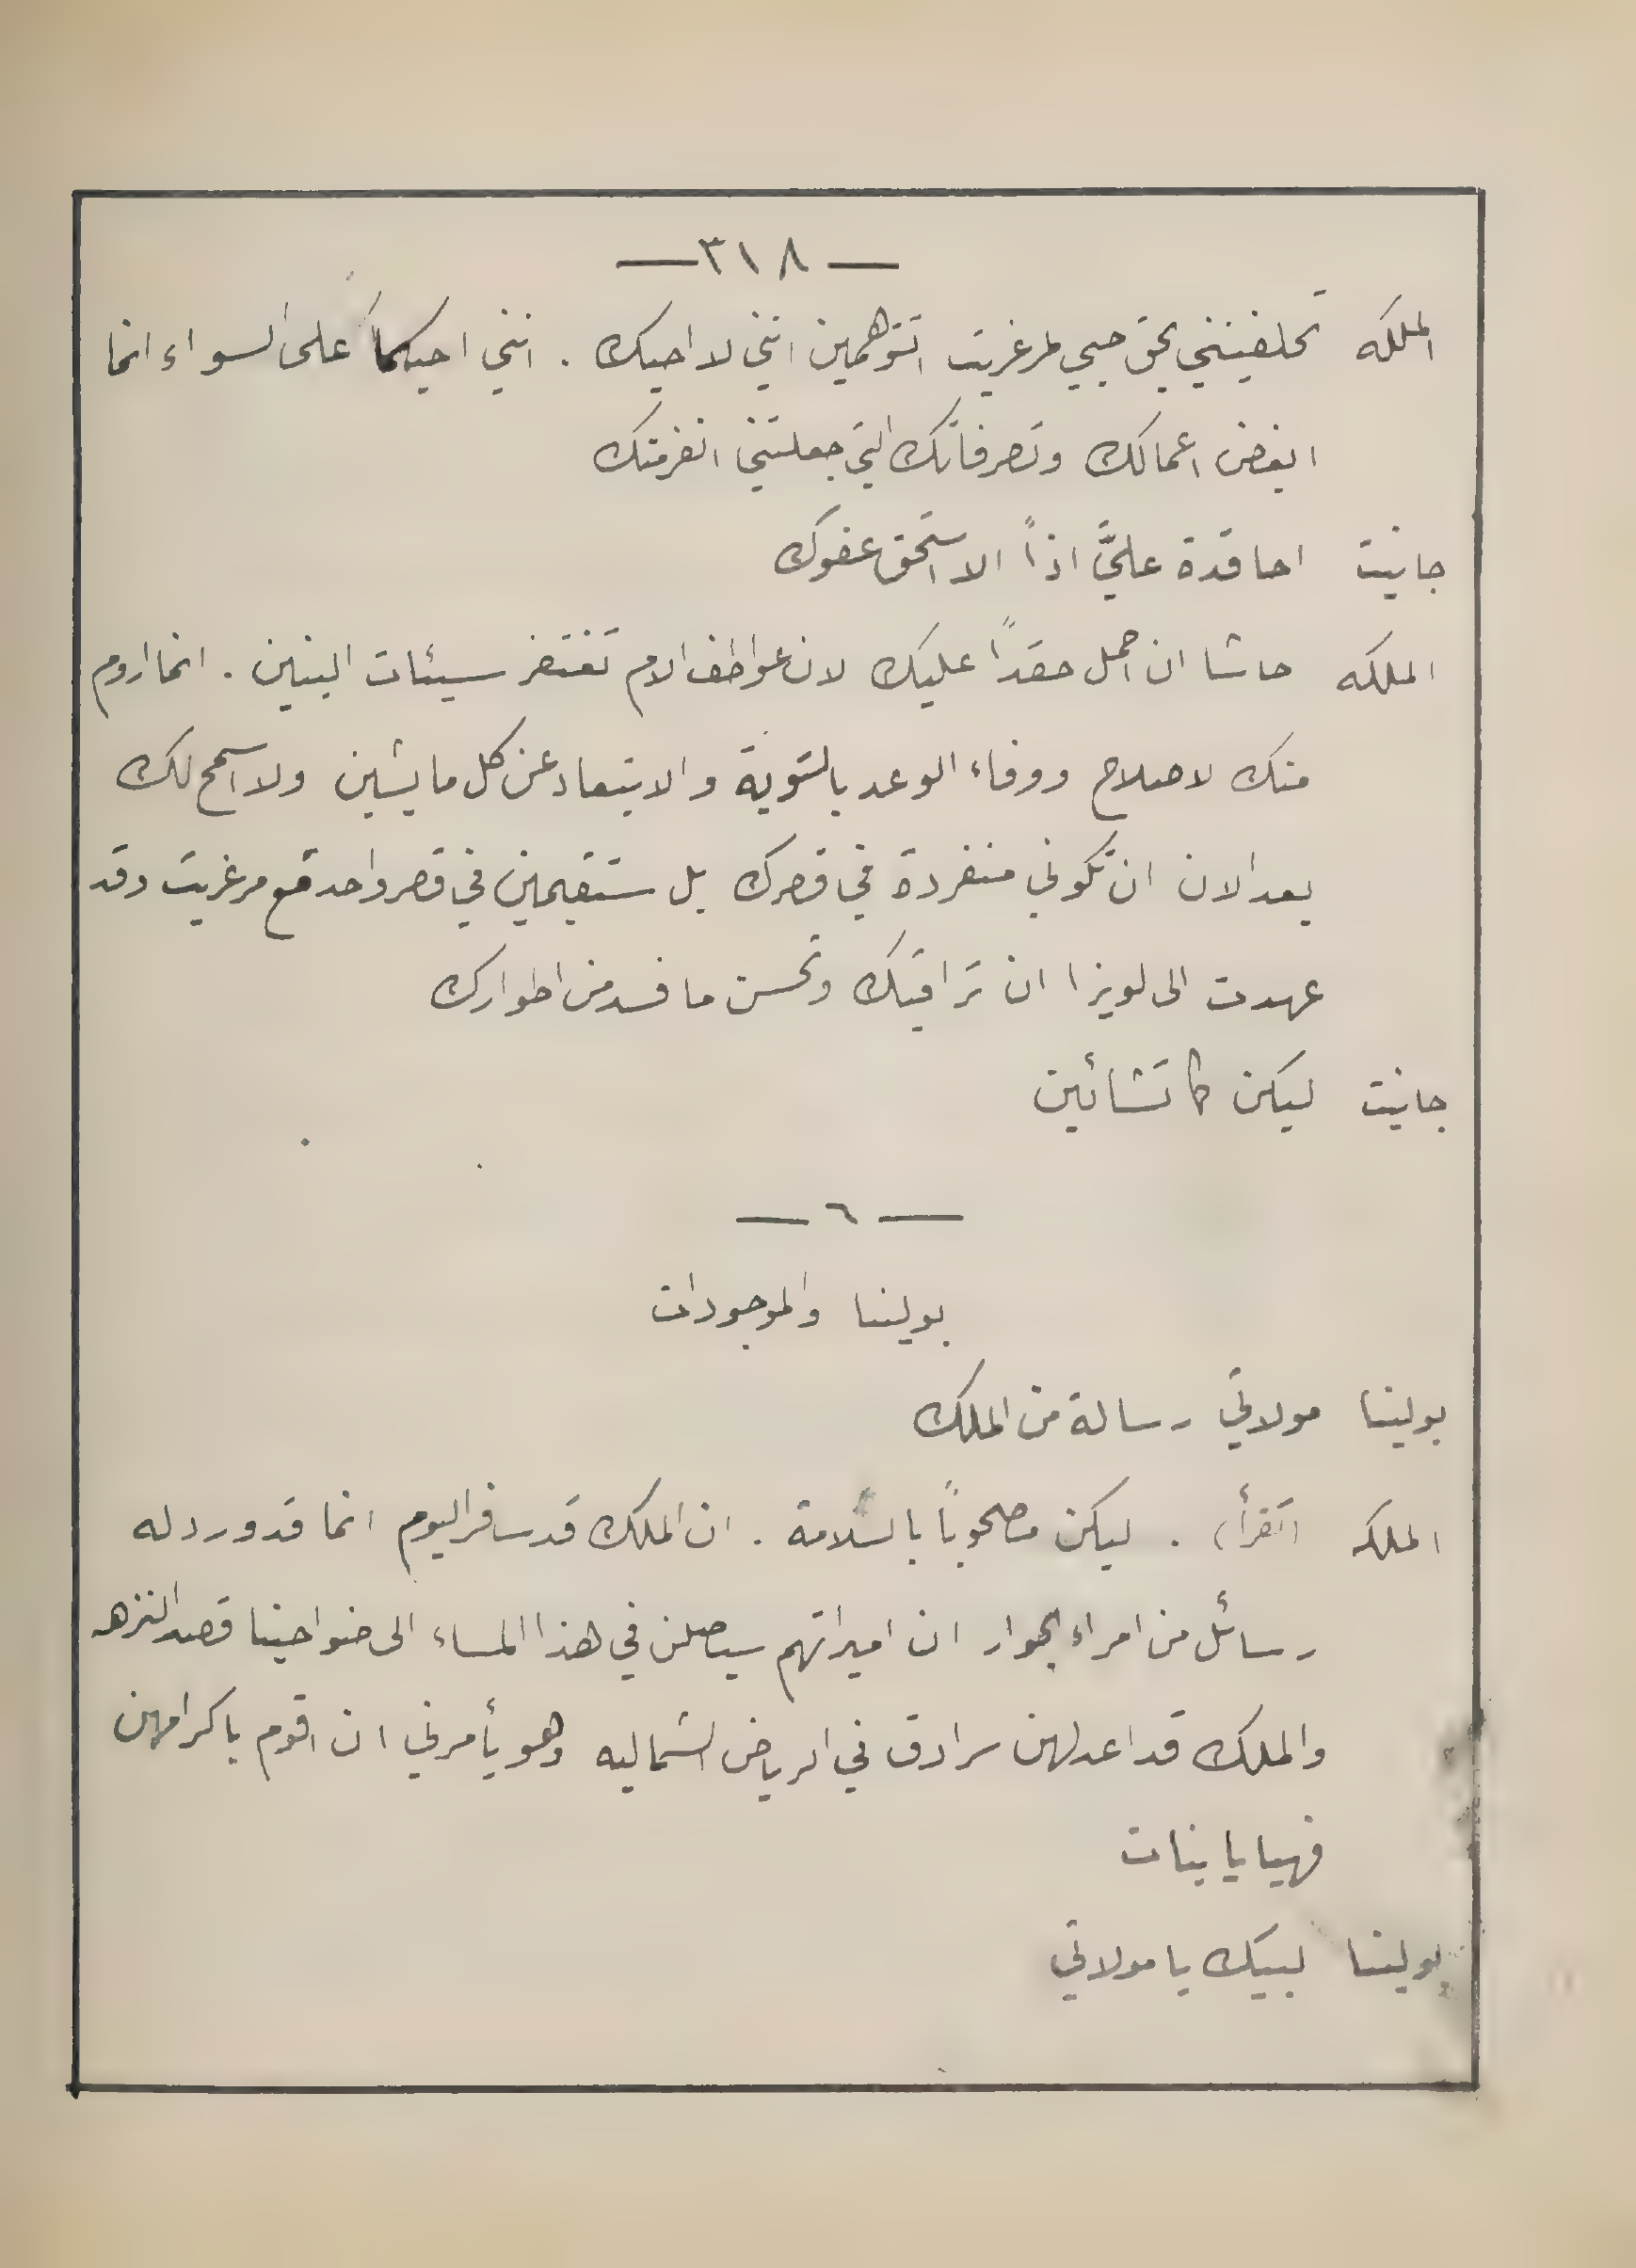 — ٣١٨ —
الملكه تحلفينني بحق حبي لمرغريت اتتوهمين انني لا احبك . انني احبكما على السواء انما
ابغض اعمالك وتصرفاتك التي جعلتني انفر منك
جانيت احاقدة عليَّ اذاً الا استحق عفوك
الملكه حاشا ان احمل حقداً عليك لان عواطف الام تغتفر سيئات البنين . انما اروم
منك لاصلاح ووفاء الوعد بالتوبة والابتعاد عن كل ما يشين ولا اسمح لك
بعد الان ان تكوني منفردة في قصرك بل ستقيمين في قصر واحد مع مرغريت وقد
عهدت الى لويزا ان تراقبك وتحسن ما فسد من اطوارك
جانيت ليكن كما تشائين
— ٦ —
بولينا والموجودات
بولينا مولاتي رسالة من الملك
الملكه (تقرأ) . ليكن مصحوباً بالسلامة . ان الملك قد سافر اليوم انما قد ورد له
رسائل من امراء الجوار ان اميراتهم سيصلن في هذا المساء الى ضواحينا قصد النزهه
والملك قد اعد لهن سرادق في الرياض الشماليه وهو يأمرني ان اقوم باكرامهن
فهيا يا بنات
بولينا لبيك يا مولاتي